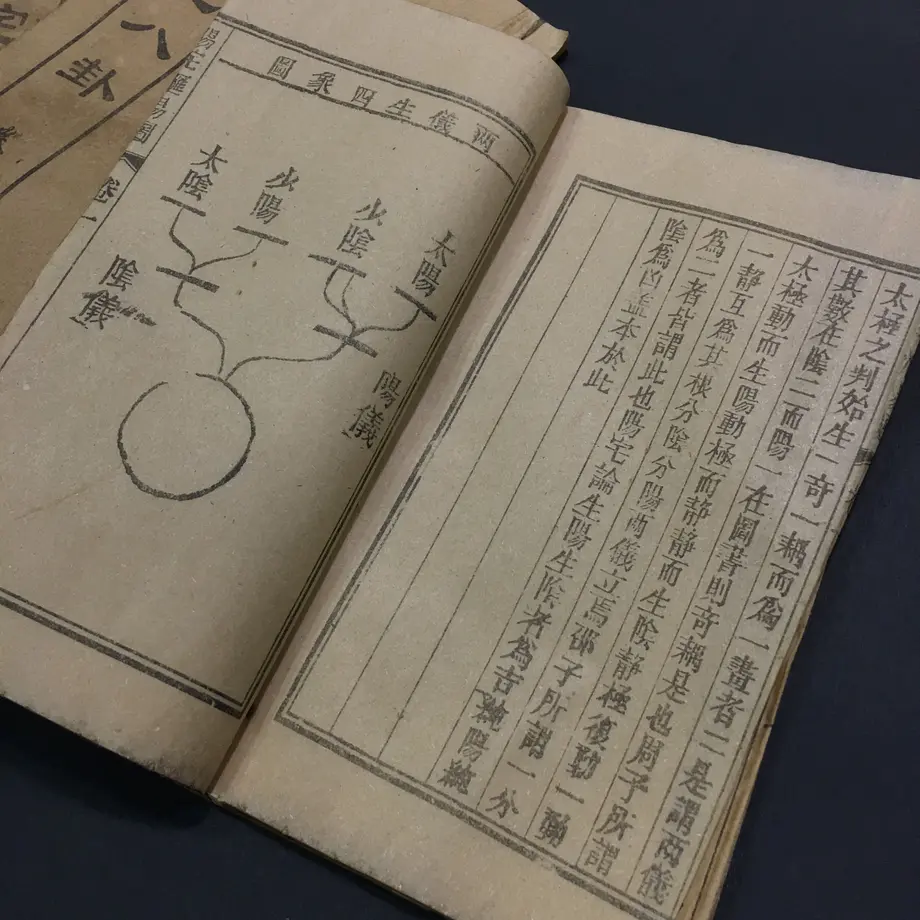 太極之判始生一奇一耦而為一畫者二是謂兩儀
其數在陰二而陽一在圖書則奇耦是也周子所謂
太極動而生陽動極而静静而生陰静極復動一動
一静互為其根分陰分陽兩儀立焉邵子所謂一分
為二者皆謂此也陽宅論生陽生陰者為吉純陽純
陰為凶盖本於此
兩儀生四象圖
太陽
少陰
少陽
太陰
陽儀
陰儀
卷一
八卦